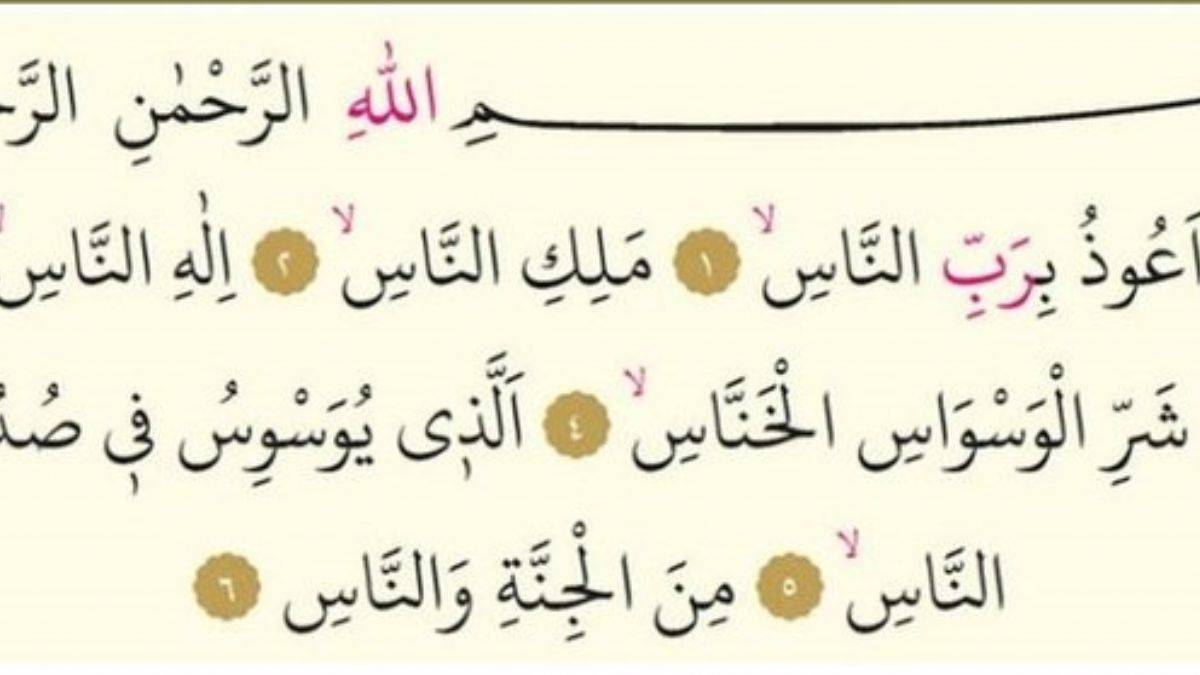 ـمِ اللّٰهِ الرَّحْمٰنِ
اَعُوذُ بِرَبِّ النَّاسِۙ ١ مَلِكِ النَّاسِۙ ٢ اِلٰهِ النَّاسِۙ
شَرِّ الْوَسْوَاسِ الْخَنَّاسِۙ ٤ اَلَّذ۪ى يُوَسْوِسُ ف۪ى
النَّاسِۙ ٥ مِنَ الْجِنَّةِ وَالنَّاسِ ٦